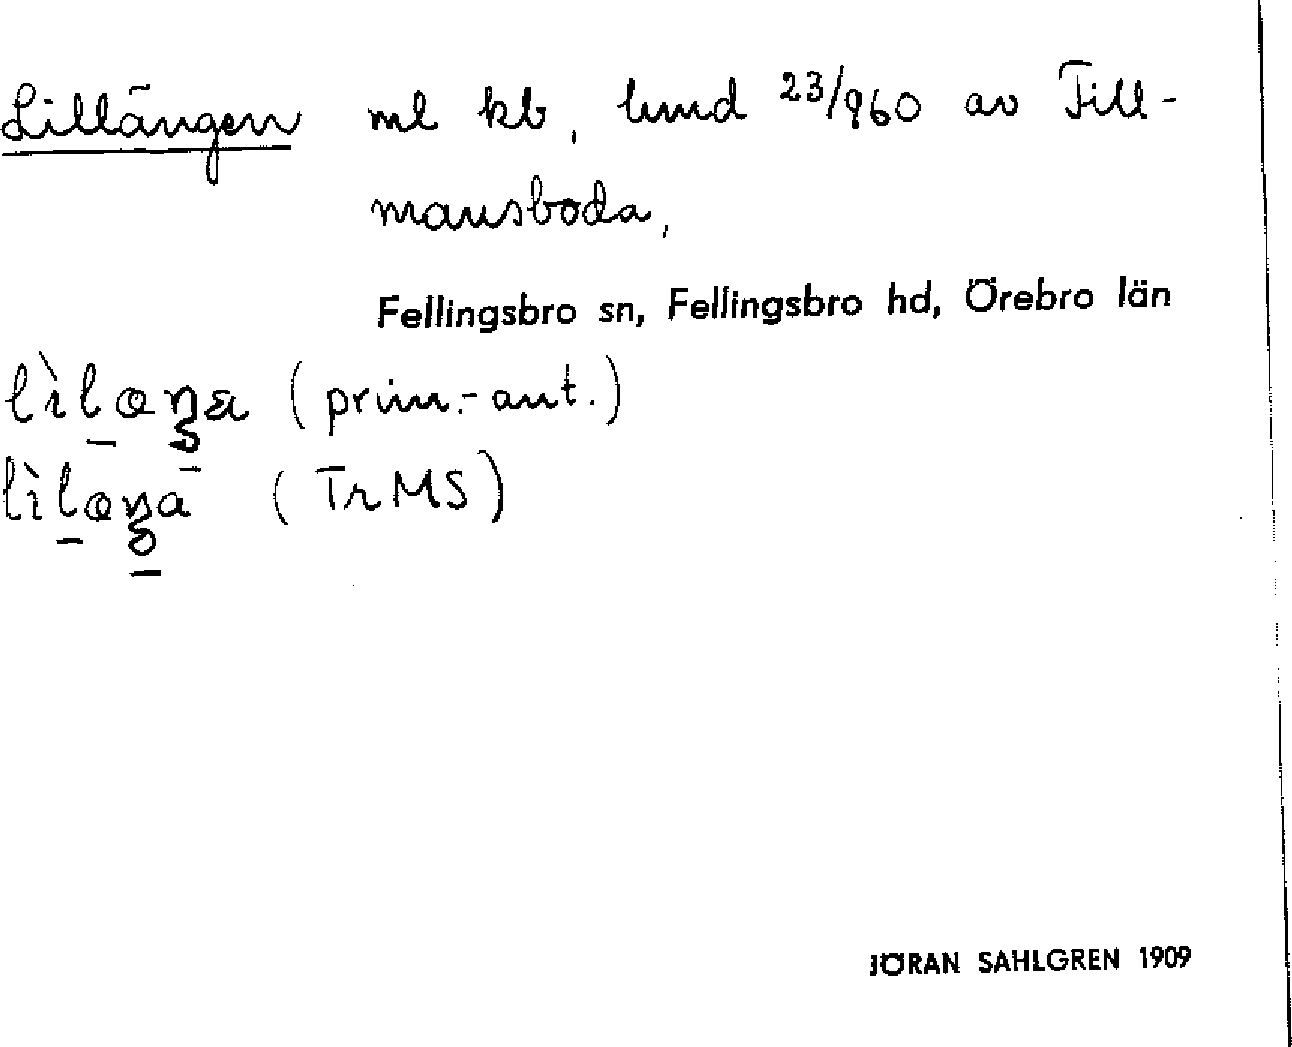 Lillängen ml kb, lund 23/960 av Fill-
mansboda,
Fellingsbro sn, Fellingsbro hd, Örebro län
(prim.-ant.)
(TrMS)
JÖRAN SAHLGREN 1909